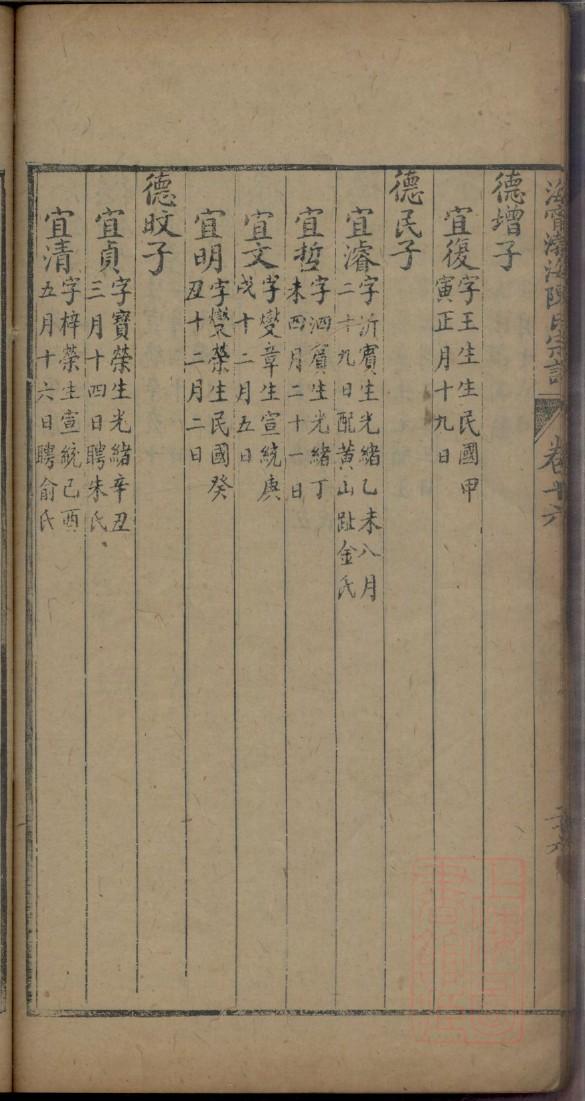 海寧渤海陳氏宗譜
卷十六
二十六
德增子
宜復字王生生民國甲
寅正月十九日
德民子
宜濬字沂賓生光緒乙未八月
二十九日配黃山趾金氏
宜哲字泗賓生光緒丁
未四月二十一日
宜文字燮章生宣統庚
戌十二月五日
宜明字燮榮生民國癸
丑十二月二日
德旼子
宜貞字寶榮生光緒辛丑
三月十四日聘朱氏
宜清字梓榮生宣統己酉
五月十六日聘俞氏